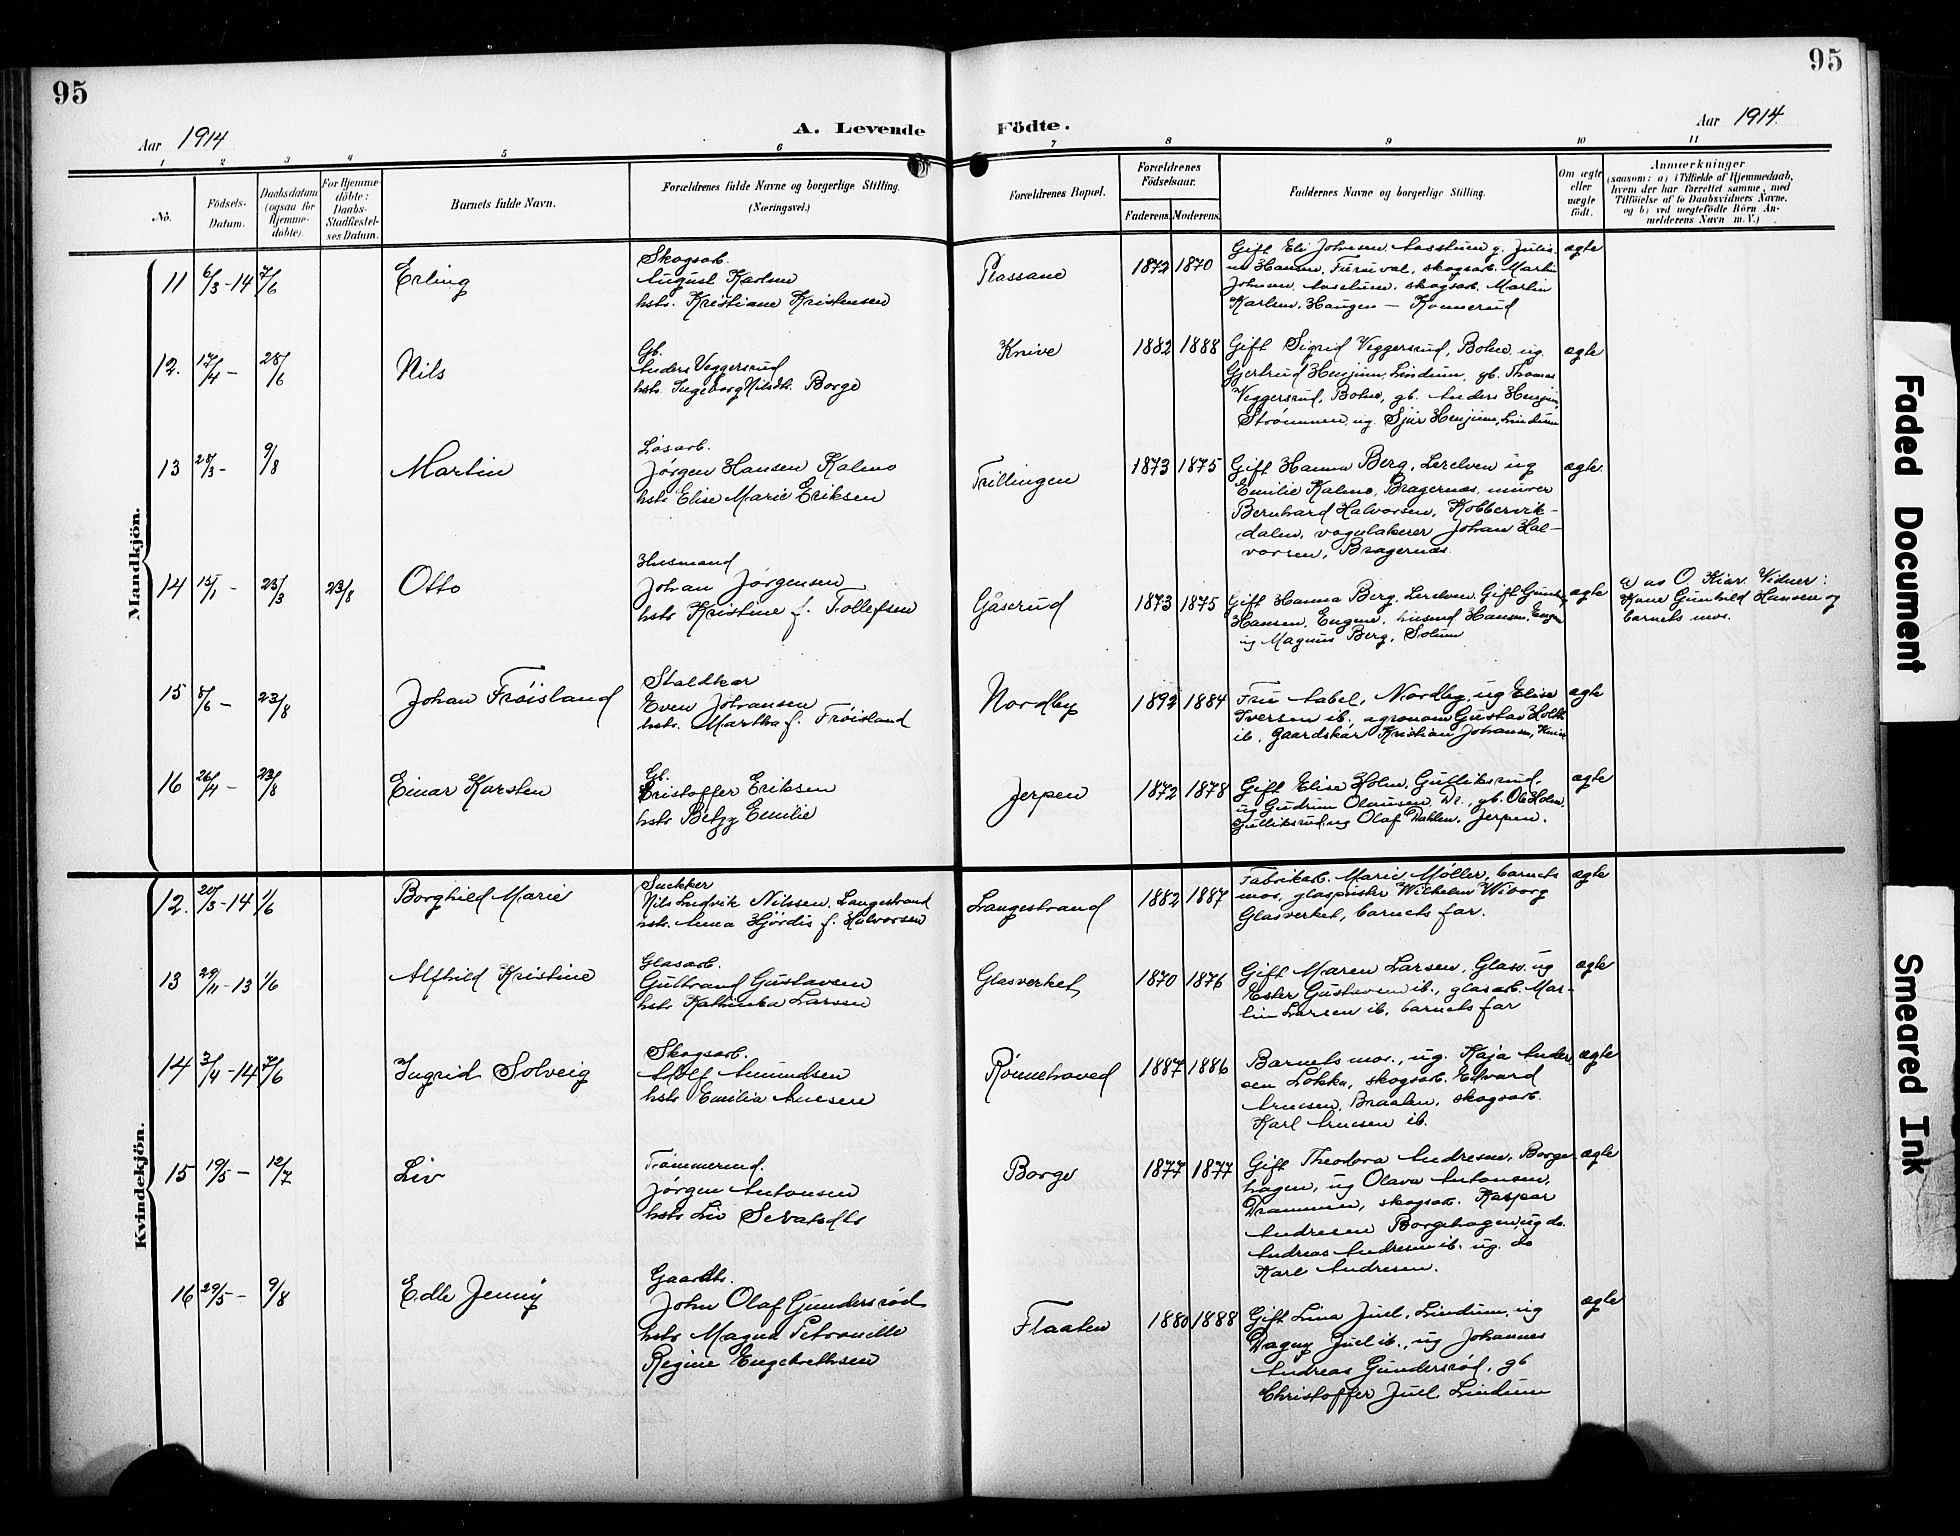 95
95
Aar 1914
A. Levende
Födte.
Aar 1914
1 2 3 4 5 6 7 8 9 10 11
No.
Födsels-Datum.
Daabsdatum (ogsaa for Hjemme-döbte).
For Hjemme-döbte: Daabs-Stadfæstel-ses Datum.
Barnets fulde Navn.
Forældrenes fulde Navne og borgerlige Stilling.
(Næringsvei.)
Forældrenes Bopæl.
Forældrenes Födselsaar.
Faderens. Moderens.
Faddernes Navne og borgerlige Stilling.
Om ægte eller uægte født.
Anmærkninger
(saasom: a) i Tilfælde af Hjemmedaab,
hvem der har forrettet samme, med
Tilföielse af to Daabsvidners Navne,
og b) ved uægtefödte Börn An-
melderens Navn m. V.)
Mandkjön.
11 6/3-14 7/6 Erling
Skogsarb.
August Karlsen
hstr. Kristiane Kristensen
Plassane 1872 1870
Gift Eli Johnsen, Aasstuen g. Julia-
ne Hansen, Furuval, skogsarb. Martin
Johnsen, Aasstuen, skogsarb. Martin
Karlsen, Haugen - Konnerud
ægte
12. 17/4 - 28/6 Nils
Gb.
Anders Veggersrud
hstr. Ingeborg Nilsdtr. Borge
Knive 1882 1888
Gift Sigrid Veggersrud, Bolne, ug.
Gjertrud Henjum, Lindum, gb. Thomas
Veggersrud, Bolne, gb. Anders Henjum,
Strømmen, ug. Sjur Henjum, Lindum
ægte
13 28/3 - 9/8 Martin
Løsarb.
Jørgen Hansen Kalmo
hstr Elise Marie Eriksen
Trillingen 1873 1875
Gift Hanna Berg, Lerelven ug
Emilie Kalmo, Bragernæs, murer
Bernhard Halvorsen, Kobbervik-
dalen, vognlakerer Johan Hal-
vorsen, Bragernæs.
ægte.
14 15/1 - 23/3 23/8 Otto
Husmand
Johan Jørgensen
hstr Kristine f. Tollefsen
Gåserud 1873 1875
Gift Hanna Berg, Lerelven, Gift Gunh.
Hansen, Eugene, husmd Hansen, Eugen
ug Magnus Berg, Solum
ægte
a) av O. Kiær. Vidner:
Kone Gunhild Hansen og
barnets mor.
15 8/6 - 23/8 Johan Frøisland
Staldkar
Even Johansen
hstr. Martha f. Frøisland
Nordby 1892 1884
Fru Aabel, Nordby, ug Elise
Iversen ib., agronom Gustav Holth
ib, Gaardskar Kristian Johansen, Knive
ægte
16 26/4 - 23/8 Einar Karsten
Gb.
Kristoffer Eriksen
hstr Betzy Emilie
Jerpen 1872 1878
Gift Elise Holm, Gulliksrud,
ug Gudrun Olausen, Dr., gb. Ole Holm,
Gulliksrud, ug Olaf Dahlen, Jerpen.
ægte
Kvindekjön.
12. 20/3-14 1/6 Borghild Marie
Snekker
Nils Ludvik Nilssen, Langestrand
hstr. Anna Hjørdis f. Halvorsen
Langestrand 1882 1887
Fabrikarb. Marie Møller, barnets
mor, glaspuster Wilhelm Wiborg
Glasverket, barnets far.
ægte
13 29/11-13 1/6 Alfhild Kristine
Glasarb.
Gulbrand Gustavsen
hstr Kathinka Larsen
Glasverket 1870 1876
Gift Maren Larsen, Glasv. ug
Ester Gustavsen ib., glasarb. Mar-
tin Larsen ib, barnets far
ægte
14 3/4-14 7/6 Ingrid Solveig
Skogsarb.
Adolf Amundsen
hstr Emilia Arnesen
Rønnehoved 1887 1886
Barnets mor, ug. Kaja Ander
sen Lokka, skogsarb. Edvard
Arnesen, Braaten, skogsarb.
Karl Arnesen ib.
ægte
15 19/5 - 12/7 Liv
Tømmermd.
Jørgen Antonsen
hstr Liv Sevatsdtr
Borge 1877 1877
Gift Theodora Andresen, Borge-
hagen, ug Olava Antonsen,
Drammen, skogsarb. Kaspar
Andresen Borgehagen, ug do.
Andreas Andresen ib. ug. do
Karl Andresen.
ægte
16 29/5 - 9/8 Edle Jenny
Gaardbr.
John Olaf Gundersrød
hstr Magna Petronille
Regine Engebrethsen
Flaaten 1880 1888
Gift Lina Juel, Lindum, ug
Dagny Juel ib., ug Johannes
Andreas Gundersrød, gb
Christoffer Juel Lindum
ægte
Faded Document
Smeared Ink